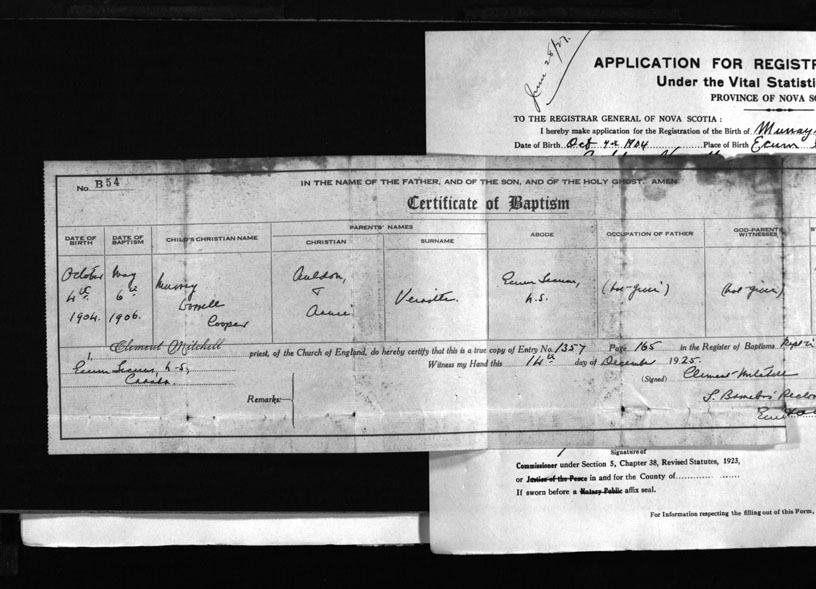 June 28/27.
APPLICATION FOR REGISTR
Under the Vital Statisti
PROVINCE OF NOVA SC
TO THE REGISTRAR GENERAL OF NOVA SCOTIA:
I hereby make application for the Registration of the Birth of Murray
Date of Birth Oct 4th 1904 Place of Birth Ecum S
No. B54
IN THE NAME OF THE FATHER, AND OF THE SON, AND OF THE HOLY GHOST. AMEN
Certificate of Baptism
DATE OF BIRTH
DATE OF BAPTISM
CHILD'S CHRISTIAN NAME
PARENTS' NAMES
CHRISTIAN
SURNAME
ABODE
OCCUPATION OF FATHER
GOD-PARENTS
WITNESSES
October
4th
1904.
May
6th
1906.
Murray
Cooper
&
Annie
Ecum Secum,
N.S.
(not given)
(not given)
I, Clement Mitchell priest, of the Church of England, do hereby certify that this is a true copy of Entry No. 1357 Page 165 in the Register of Baptisms Kept in
Ecum Secum, N.S., Witness my Hand this 14th day of December 1925.
Canada.
(Signed) Clement Mitchell
Remarks:—
S. Barnabas' Recto
Signature of
Commissioner under Section 5, Chapter 38, Revised Statutes, 1923,
or Justice of the Peace in and for the County of
If sworn before a Notary Public affix seal.
For Information respecting the filling out of this Form,